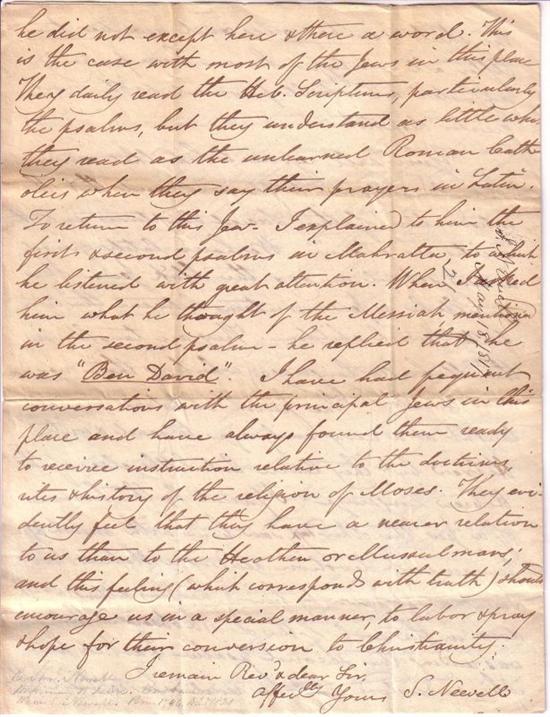 he did not except here & there a word. This
is the case with most of the Jews in this place
They daily read the Heb. Scriptures, particularly
the psalms, but they understand as little what
they read as the unlearned Roman Cath
olics when they say their prayers in Latin.
To return to this Jew - I explained to him the
first & second psalms in Mahratta, to which
he listened with great attention. When I asked
him what he thought of the Messiah mentioned
in the second psalm - he replied that he
was "Ben David". I have had frequent
conversations with the principal Jews in this
place and have always found them ready
to receive instruction relative to the doctrines,
rites & history of the religion of Moses. They evi-
dently feel that they have a nearer relation
to us than to the Heathen or Mussulmans;
and this feeling (which corresponds with truth) should
encourage us in a special manner, to labor & pray
& hope for their conversion to Christianity.
I remain Revd & dear Sir.
Affecly Yours S. Newell